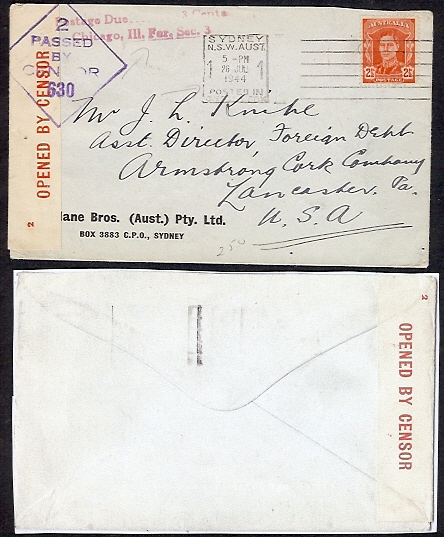 Postage Due 3 Cents
Chicago, Ill, For. Sec. 3
2
PASSED
BY
CENSOR
630
OPENED BY CENSOR
2
SYDNEY
N.S.W. AUST.
5 - PM
26 JUL
1944
POSTED IN
1
1
AUSTRALIA
2½
2½
POSTAGE
Mr J. L. Knibe
Asst. Director, Foreign Dept
Armstrong Cork Company
Lancaster, Pa.
U.S.A
lane Bros. (Aust.) Pty. Ltd.
BOX 3883 G.P.O., SYDNEY
250
2
OPENED BY CENSOR